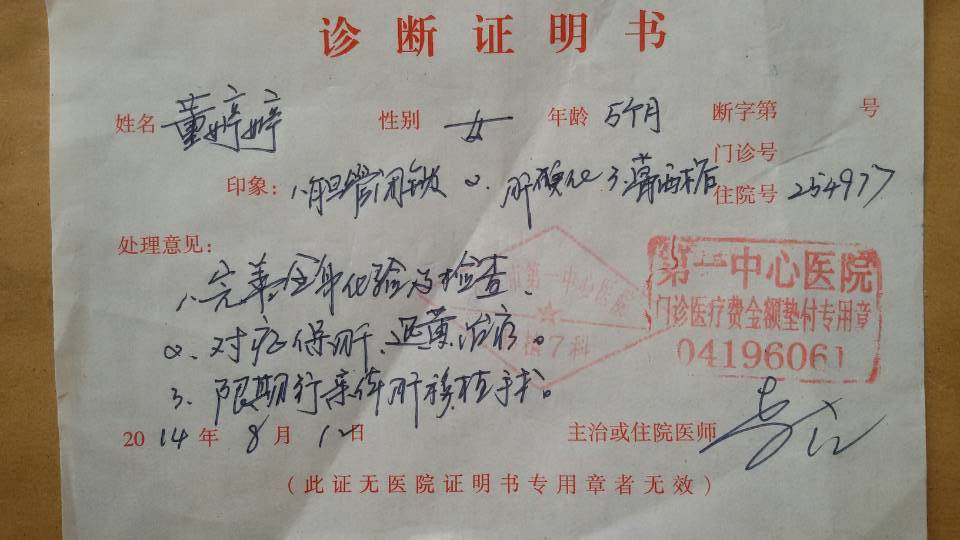 诊断证明书
姓名 董婷婷 性别 女 年龄 5个月 断字第 号
门诊号
印象: 1.胆管闭锁 2. 肝硬化 3.葛西术后 住院号 254977
处理意见:
1. 完善全身化验及检查.
2. 对症保肝、退黄治疗。
3. 限期行亲体肝移植手术。
市第一中心医院
移7科
第一中心医院
门诊医疗费金额垫付专用章
04196061
2014年8月12日 主治或住院医师
(此证无医院证明书专用章者无效)